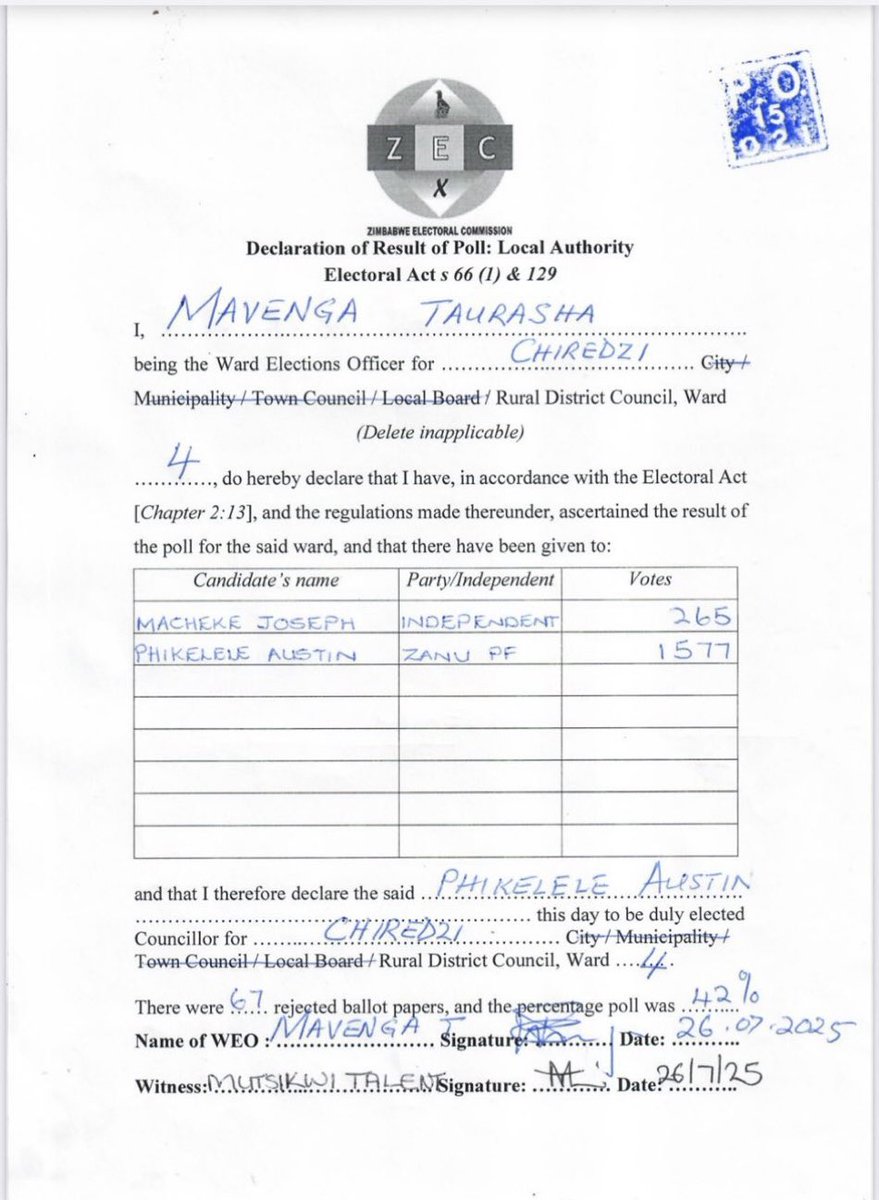 P O.
15
021
Z E C
X
ZIMBABWE ELECTORAL COMMISSION
Declaration of Result of Poll: Local Authority
Electoral Act s 66 (1) & 129
I, MAVENGA TAURASHA
being the Ward Elections Officer for CHIREDZI City /
Municipality / Town Council / Local Board / Rural District Council, Ward
(Delete inapplicable)
4, do hereby declare that I have, in accordance with the Electoral Act
[Chapter 2:13], and the regulations made thereunder, ascertained the result of
the poll for the said ward, and that there have been given to:
Candidate's name Party/Independent Votes
MACHEKE JOSEPH INDEPENDENT 265
PHIKELELE AUSTIN ZANU PF 1577
and that I therefore declare the said PHIKELELE AUSTIN
this day to be duly elected
Councillor for CHIREDZI City / Municipality /
Town Council / Local Board / Rural District Council, Ward 4.
There were 67 rejected ballot papers, and the percentage poll was 42%
Name of WEO : MAVENGA T Signature: Date: 26.07.2025
Witness: MUTSIKWI TALENT Signature: Date: 26/7/25